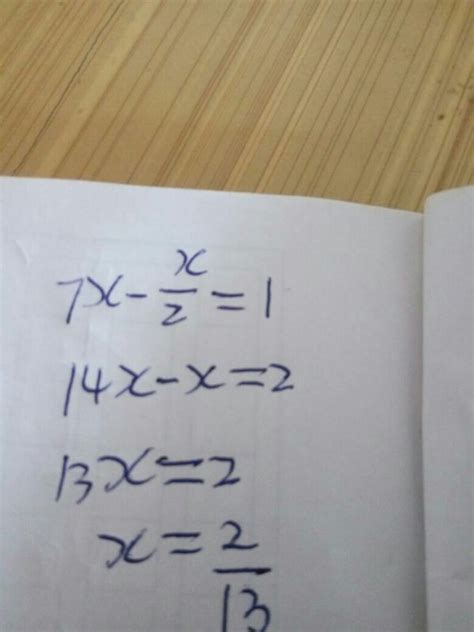 7x - x/2 = 1
14x - x = 2
13x = 2
x = 2/13